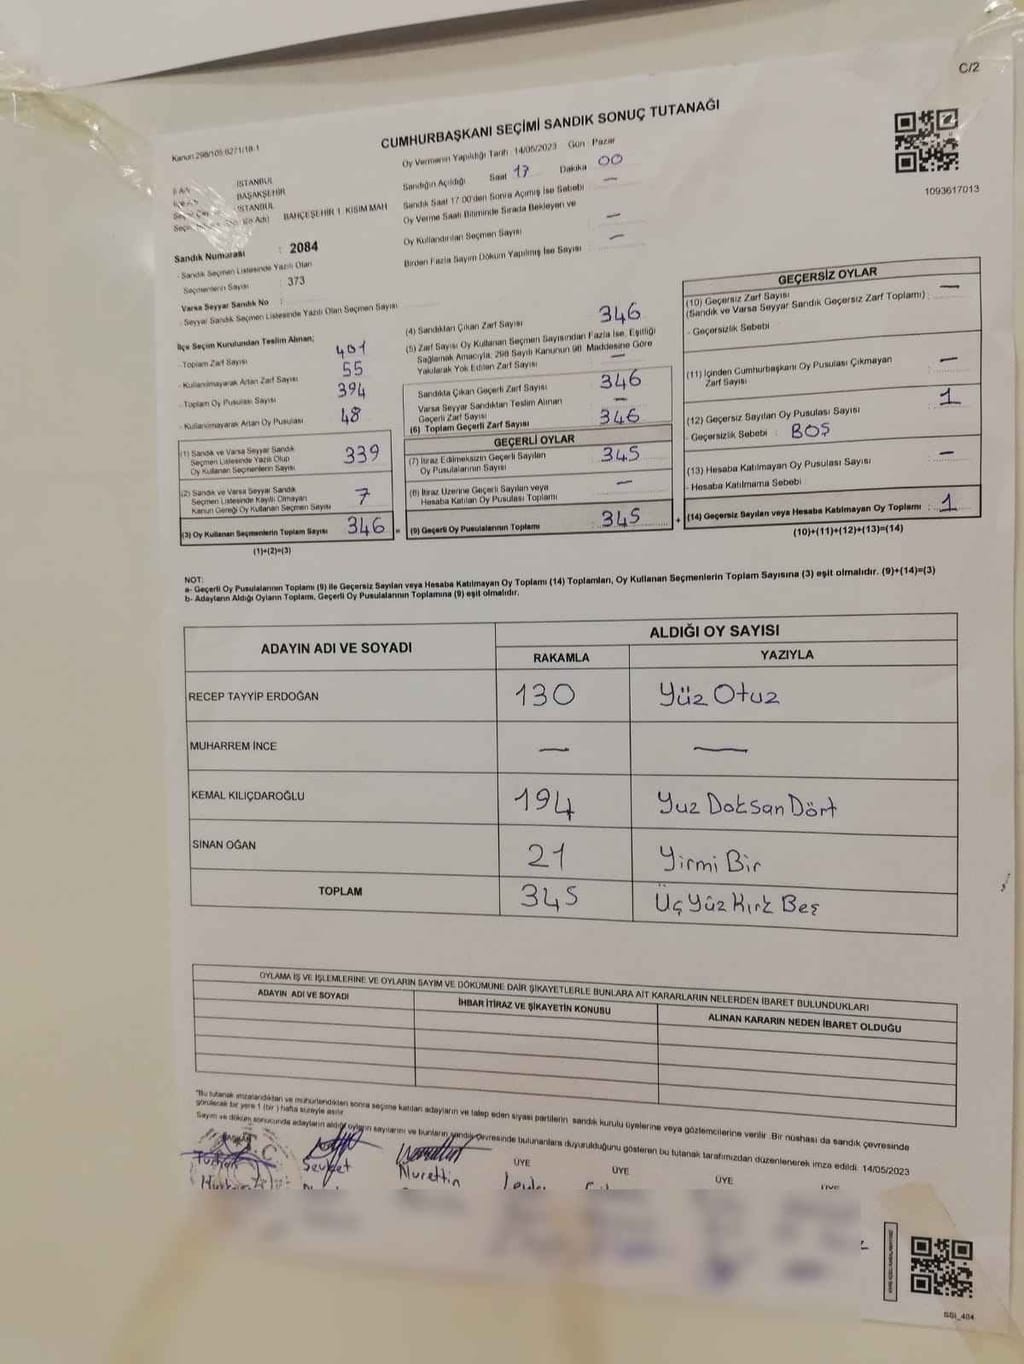 C/2
CUMHURBAŞKANI SEÇİMİ SANDIK SONUÇ TUTANAĞI
Oy Vermenin Yapıldığı Tarih 14/05/2023 Gün : Pazar
İSTANBUL
BAŞAKŞEHİR
İSTANBUL
BAHÇEŞEHİR 1. KISIM MAH
Sandığın Açıldığı Saat 17 Dakika 00
Sandık Saat 17.00'den Sonra Açımış İse Sebebi —
Oy Verme Saati Bitiminde Sırada Bekleyen ve
Oy Kullandırılan Seçmen Sayısı —
Birden Fazla Sayım Döküm Yapılmış İse Sayısı —
1093617013
Sandık Numarası : 2084
- Sandık Seçmen Listesinde Yazılı Olan
Seçmenlerin Sayısı : 373
Varsa Seyyar Sandık No :
- Seyyar Sandık Seçmen Listesinde Yazılı Olan Seçmen Sayısı
İlçe Seçim Kurulundan Teslim Alınan;
- Toplam Zarf Sayısı 401
- Kullanılmayarak Artan Zarf Sayısı 55
- Toplam Oy Pusulası Sayısı 394
- Kullanılmayarak Artan Oy Pusulası 48
(1) Sandık ve Varsa Seyyar Sandık
Seçmen Listesinde Yazılı Olup
Oy Kullanan Seçmenlerin Sayısı 339
(2) Sandık ve Varsa Seyyar Sandık
Seçmen Listesinde Kayıtlı Olmayan
Kanun Gereği Oy Kullanan Seçmen Sayısı 7
(3) Oy Kullanan Seçmenlerin Toplam Sayısı 346 =
(1)+(2)=(3)
(4) Sandıktan Çıkan Zarf Sayısı 346
(5) Zarf Sayısı Oy Kullanan Seçmen Sayısından Fazla İse, Eşitliği
Sağlamak Amacıyla, 298 Sayılı Kanunun 98. Maddesine Göre
Yakılarak Yok Edilen Zarf Sayısı —
Sandıkta Çıkan Geçerli Zarf Sayısı 346
Varsa Seyyar Sandıktan Teslim Alınan
Geçerli Zarf Sayısı —
(6) Toplam Geçerli Zarf Sayısı 346
GEÇERLİ OYLAR
(7) İtiraz Edilmeksizin Geçerli Sayılan
Oy Pusulalarının Sayısı 345
(8) İtiraz Üzerine Geçerli Sayılan veya
Hesaba Katılan Oy Pusulası Toplamı —
(9) Geçerli Oy Pusulalarının Toplamı 345 +
GEÇERSİZ OYLAR
(10) Geçersiz Zarf Sayısı
(Sandık ve Varsa Seyyar Sandık Geçersiz Zarf Toplamı) : —
- Geçersizlik Sebebi
(11) İçinden Cumhurbaşkanı Oy Pusulası Çıkmayan
Zarf Sayısı —
(12) Geçersiz Sayılan Oy Pusulası Sayısı 1
- Geçersizlik Sebebi : BOŞ
(13) Hesaba Katılmayan Oy Pusulası Sayısı —
- Hesaba Katılmama Sebebi
(14) Geçersiz Sayılan veya Hesaba Katılmayan Oy Toplamı : 1
(10)+(11)+(12)+(13)=(14)
NOT:
a- Geçerli Oy Pusulalarının Toplamı (9) ile Geçersiz Sayılan veya Hesaba Katılmayan Oy Toplamı (14) Toplamları, Oy Kullanan Seçmenlerin Toplam Sayısına (3) eşit olmalıdır. (9)+(14)=(3)
b- Adayların Aldığı Oyların Toplamı, Geçerli Oy Pusulalarının Toplamına (9) eşit olmalıdır.
ADAYIN ADI VE SOYADI ALDIĞI OY SAYISI
RAKAMLA YAZIYLA
RECEP TAYYİP ERDOĞAN 130 Yüz Otuz
MUHARREM İNCE — —
KEMAL KILIÇDAROĞLU 194 Yuz Doksan Dört
SİNAN OĞAN 21 Yirmi Bir
TOPLAM 345 Üç Yüz Kırk Beş
OYLAMA İŞ VE İŞLEMLERİNE VE OYLARIN SAYIM VE DÖKÜMÜNE DAİR ŞİKAYETLERLE BUNLARA AİT KARARLARIN NELERDEN İBARET BULUNDUKLARI
ADAYIN ADI VE SOYADI İHBAR İTİRAZ VE ŞİKAYETİN KONUSU ALINAN KARARIN NEDEN İBARET OLDUĞU
"Bu tutanak imzalandıktan ve mühürlendikten sonra seçime katılan adayların ve talep eden siyasi partilerin sandık kurulu üyelerine veya gözlemcilerine verilir. Bir nüshası da sandık çevresinde
görülecek bir yere 1 (bir) hafta süreyle asılır.
Sayım ve döküm sonucunda adayların aldığı oyların sayılarını ve bunların sandık çevresinde bulunanlara duyurulduğunu gösteren bu tutanak tarafımızdan düzenlenerek imza edildi. 14/05/2023
Sevket Nurettin ÜYE ÜYE ÜYE